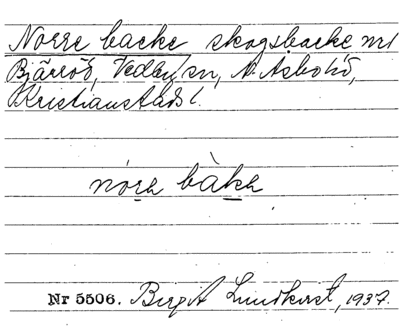 Norre backe skogsbacke nr 1
Bjärröd, Vedby sn, N. Asbo hd,
Kristianstads l.
nórə bàkə
Nr 5506. Birgit Lundkvist, 1937.